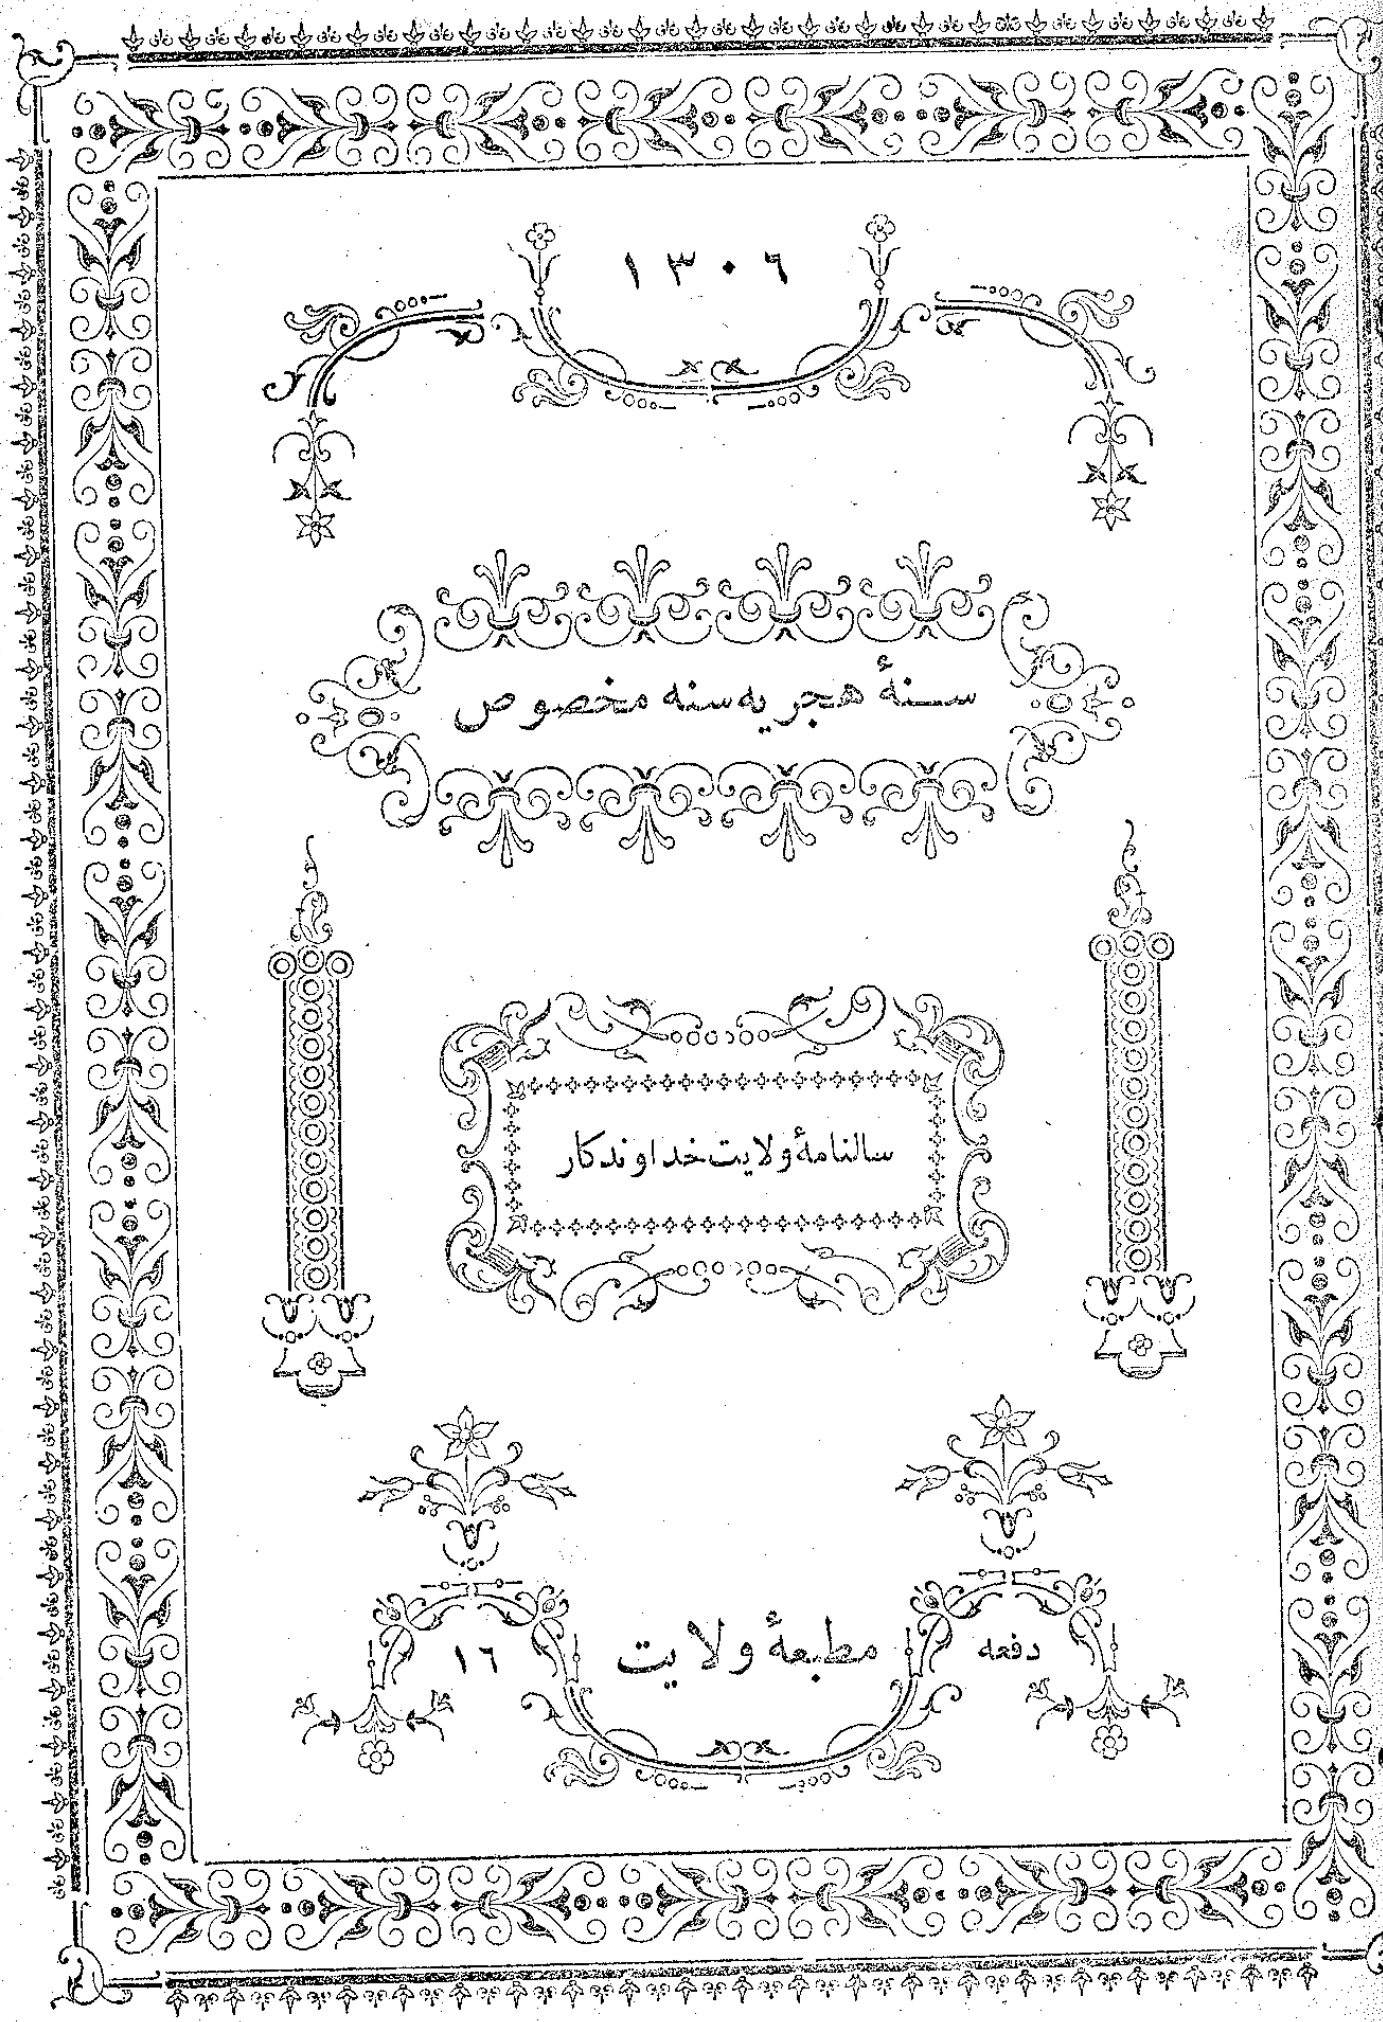 ١٣٠٦
سنهٔ هجریه سنه مخصوص
سالنامهٔ ولایت خداوندکار
دفعه مطبعهٔ ولایت ١٦